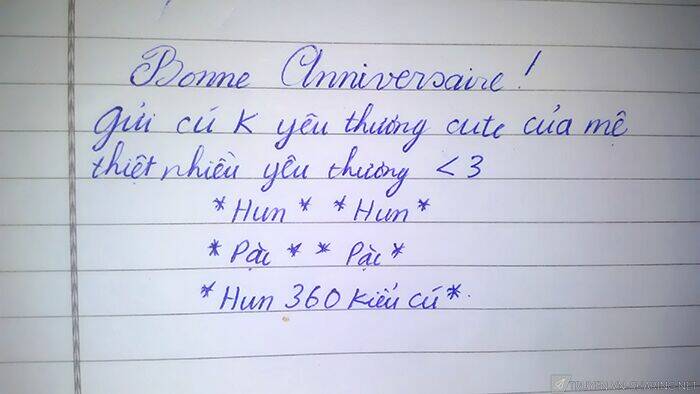 Bonne Anniversaire!
gửi cú K yêu thương cute của mệ
thiệt nhiều yêu thương <3
*Hun* *Hun*
*Pặc* *Pặc*
*Hun 360 kiểu cú*